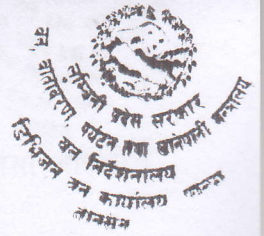 लुम्बिनी प्रदेश सरकार
वन, वातावरण, पर्यटन तथा खानेपानी मन्त्रालय
वन निर्देशनालय
डिभिजन वन कार्यालय